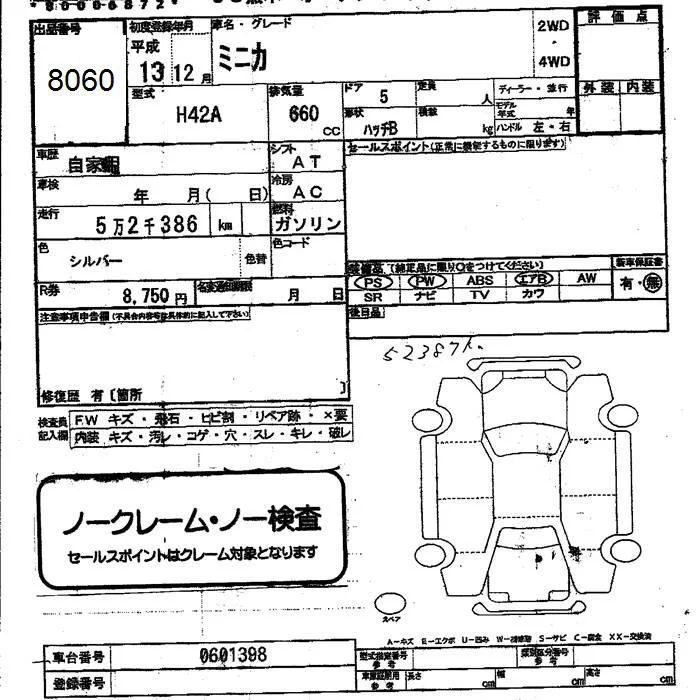 出品番号
8060
初度登録年月
平成
13 12 月
車名・グレード
ミニカ
2WD
・
4WD
評価点
外装 内装
型式
H42A
排気量
660
CC
ドア
5
定員
人
形状
ハッチB
積載
kg
ディーラー・並行
モデル年式
年
ハンドル 左・右
車歴
自家用
シフト
AT
セールスポイント(正常に機能するものに限ります)
車検
年 月( 日)
冷房
AC
走行
5万2千386 km
燃料
ガソリン
色
シルバー
色替
色コード
装備品 (純正品に限り○をつけてください)
新車保証書
PS PW ABS エアB AW
有・無
SR ナビ TV カワ
R券
8,750 円
名変通知期限
月 日
後日品
注意事項申告欄(不具合内容等は具体的に記入して下さい)
52387K.
修復歴 有〔箇所 〕
検査員記入欄
FW キズ・飛石・ヒビ割・リペア跡・×要
内装 キズ・汚レ・コゲ・穴・スレ・キレ・破レ
ノークレーム・ノー検査
セールスポイントはクレーム対象となります
スペア
A-キズ E-エクボ U-凹み W-補修跡 S-サビ C-腐食 XX-交換済
車台番号
0601398
型式指定番号
参考
類別区分番号
参考
登録番号
車庫証明用
参考
長さ
cm
幅
cm
高さ
cm